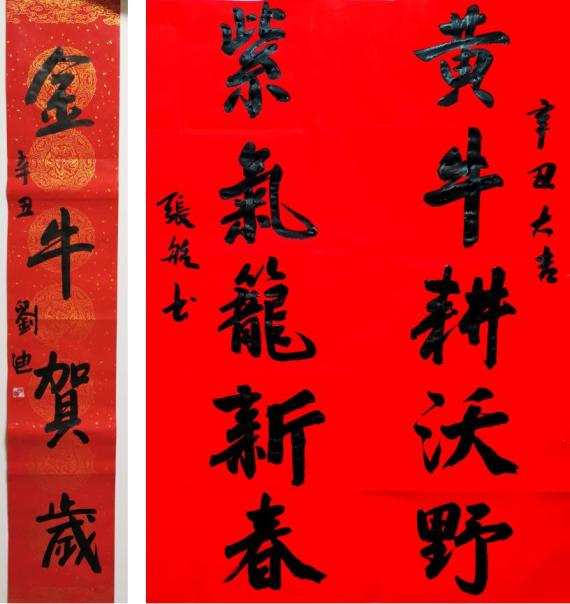 金牛賀歲
辛丑
劉迪
辛丑大吉
黄牛耕沃野
紫氣籠新春
張
書